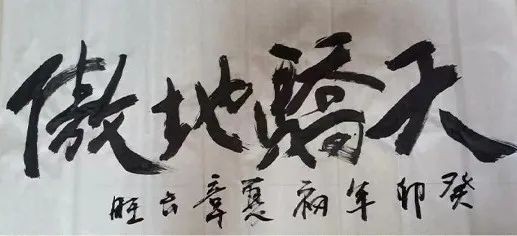 天驕地傲
癸卯年初夏章云旺